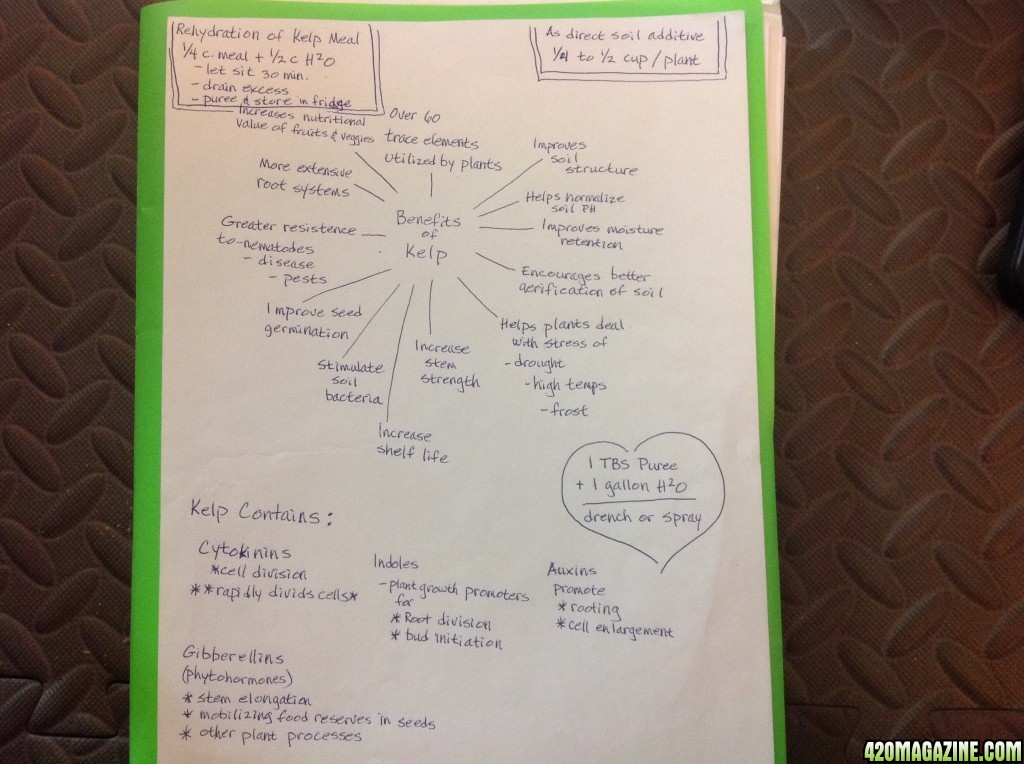 Rehydration of Kelp Meal
1/4 c. meal + 1/2 c H2O
- let sit 30 min.
- drain excess
- puree & store in fridge
As direct soil additive
1/4 to 1/2 cup/plant
Increases nutritional
value of fruits & veggies
Over 60
trace elements
utilized by plants
Improves
soil
structure
More extensive
root systems
Helps normalize
soil PH
Benefits
of
Kelp
Greater resistence
to-nematodes
- disease
- pests
Improves moisture
retention
Encourages better
aerification of soil
Improve seed
germination
Helps plants deal
with stress of
- drought
- high temps
- frost
Stimulate
soil
bacteria
Increase
stem
strength
Increase
shelf life
1 TBS Puree
+ 1 gallon H2O
drench or spray
Kelp Contains:
Cytokinins
*cell division
**rapidly divids cells*
Indoles
- plant growth promoters
for
* Root division
* bud initiation
Auxins
promote
* rooting
* cell enlargement
Gibberellins
(phytohormones)
* stem elongation
* mobilizing food reserves in seeds
* other plant processes
420MAGAZINE.COM